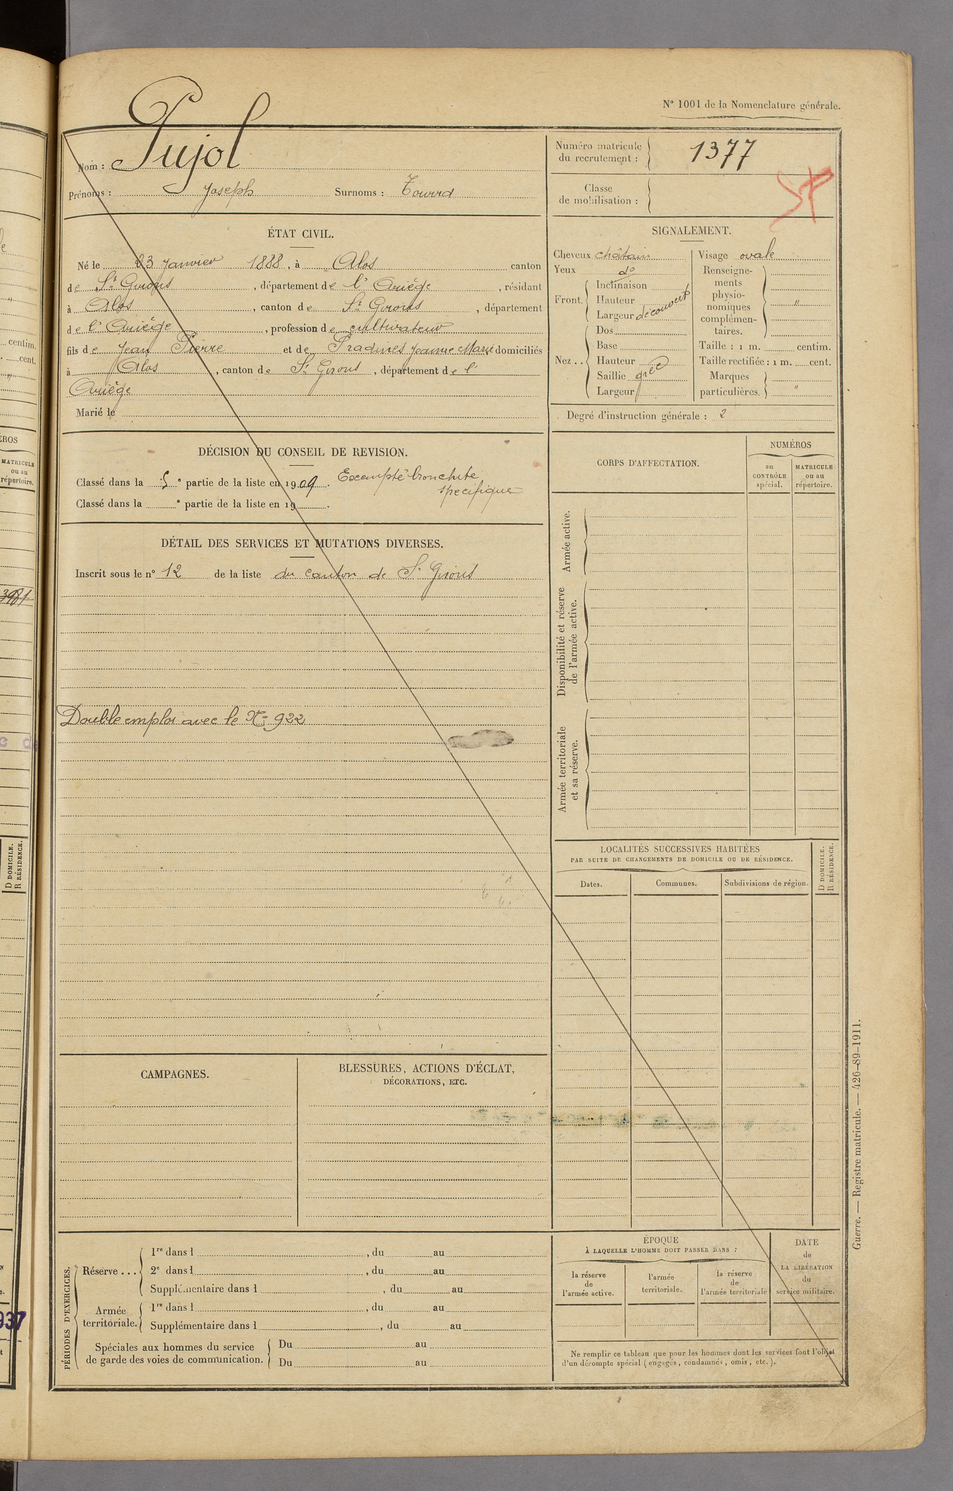 N° 1001 de la Nomenclature générale.
Nom : Pujol
Prénoms : Joseph Surnoms :
Numéro matricule du recrutement : 1377
Classe de mobilisation :
ÉTAT CIVIL.
Né le 23 Janvier 1888, à Alos canton
de St Girons, département de l'Ariège, résidant
à Alos, canton de St Girons, département
de l'Ariège, profession de cultivateur
fils de Jean Pierre et de Pradines Jeanne Marie domiciliés
à Alos, canton de St Girons, département de l'
Ariège
Marié le
SIGNALEMENT.
Cheveux châtain
Yeux do
Front. Inclinaison
Hauteur
Largeur découvert
Nez .. Dos
Base
Hauteur
Saillie
Largeur
Visage ovale
Renseignements physionomiques complémentaires. "
Taille : 1 m. centim.
Taille rectifiée : 1 m. cent.
Marques particulières. "
Degré d'instruction générale : 2
DÉCISION DU CONSEIL DE REVISION.
Classé dans la 5e partie de la liste en 1909. Exempté bronchite
spécifique
Classé dans la e partie de la liste en 19 .
DÉTAIL DES SERVICES ET MUTATIONS DIVERSES.
Inscrit sous le n° 12 de la liste du canton de St Girons
Double emploi avec le N° 922
CORPS D'AFFECTATION.
NUMÉROS
au CONTRÔLE spécial.
MATRICULE ou au répertoire.
Armée active.
Disponibilité et réserve de l'armée active.
Armée territoriale et sa réserve.
LOCALITÉS SUCCESSIVES HABITÉES
PAR SUITE DE CHANGEMENTS DE DOMICILE OU DE RÉSIDENCE.
Dates. Communes. Subdivisions de région.
D DOMICILE.
R RÉSIDENCE.
CAMPAGNES.
BLESSURES, ACTIONS D'ÉCLAT,
DÉCORATIONS, ETC.
PÉRIODES D'EXERCICES.
Réserve ... 1re dans l , du au
2e dans l , du au
Supplémentaire dans l , du au
Armée territoriale. 1re dans l , du au
Supplémentaire dans l , du au
Spéciales aux hommes du service de garde des voies de communication. Du au
Du au
ÉPOQUE
À LAQUELLE L'HOMME DOIT PASSER DANS :
la réserve de l'armée active.
l'armée territoriale.
la réserve de l'armée territoriale
DATE de LA LIBÉRATION du service militaire.
Ne remplir ce tableau que pour les hommes dont les services font l'objet
d'un décompte spécial (engagés, condamnés, omis, etc.).
Guerre. — Registre matricule. — 426-89-1911.